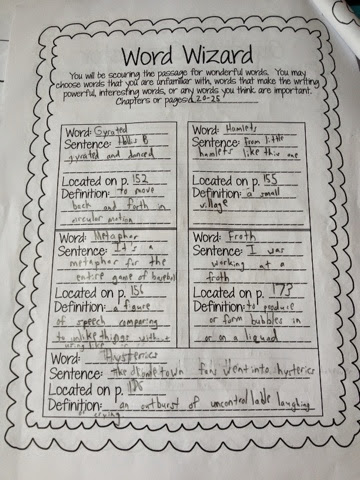 Word Wizard
You will be securing the passage for wonderful words. You may
choose words that you are unfamiliar with, words that make the writing
powerful, interesting words, or any words you think are important.
Chapters or pages: 20-25
Word: Gyrated
Sentence: Hobbs B
gyrated and danced
Located on p. 152
Definition: to move
back and forth in
circular motion
Word: Hamlets
Sentence: From little
hamlets like this one
Located on p. 155
Definition: a small
village
Word: Metaphor
Sentence: It's a
metaphor for the
entire game of baseball
Located on p. 156
Definition: a figure
of speech comparing
to unlike things without
using like
Word: Froth
Sentence: I was
working at a
froth
Located on p. 173
Definition: to produce
or form bubbles in
or on a liquad
Word: Hysterics
Sentence: the hometown fans went into hysterics
Located on p.
Definition: an outburst of uncontrolable laughing
crying